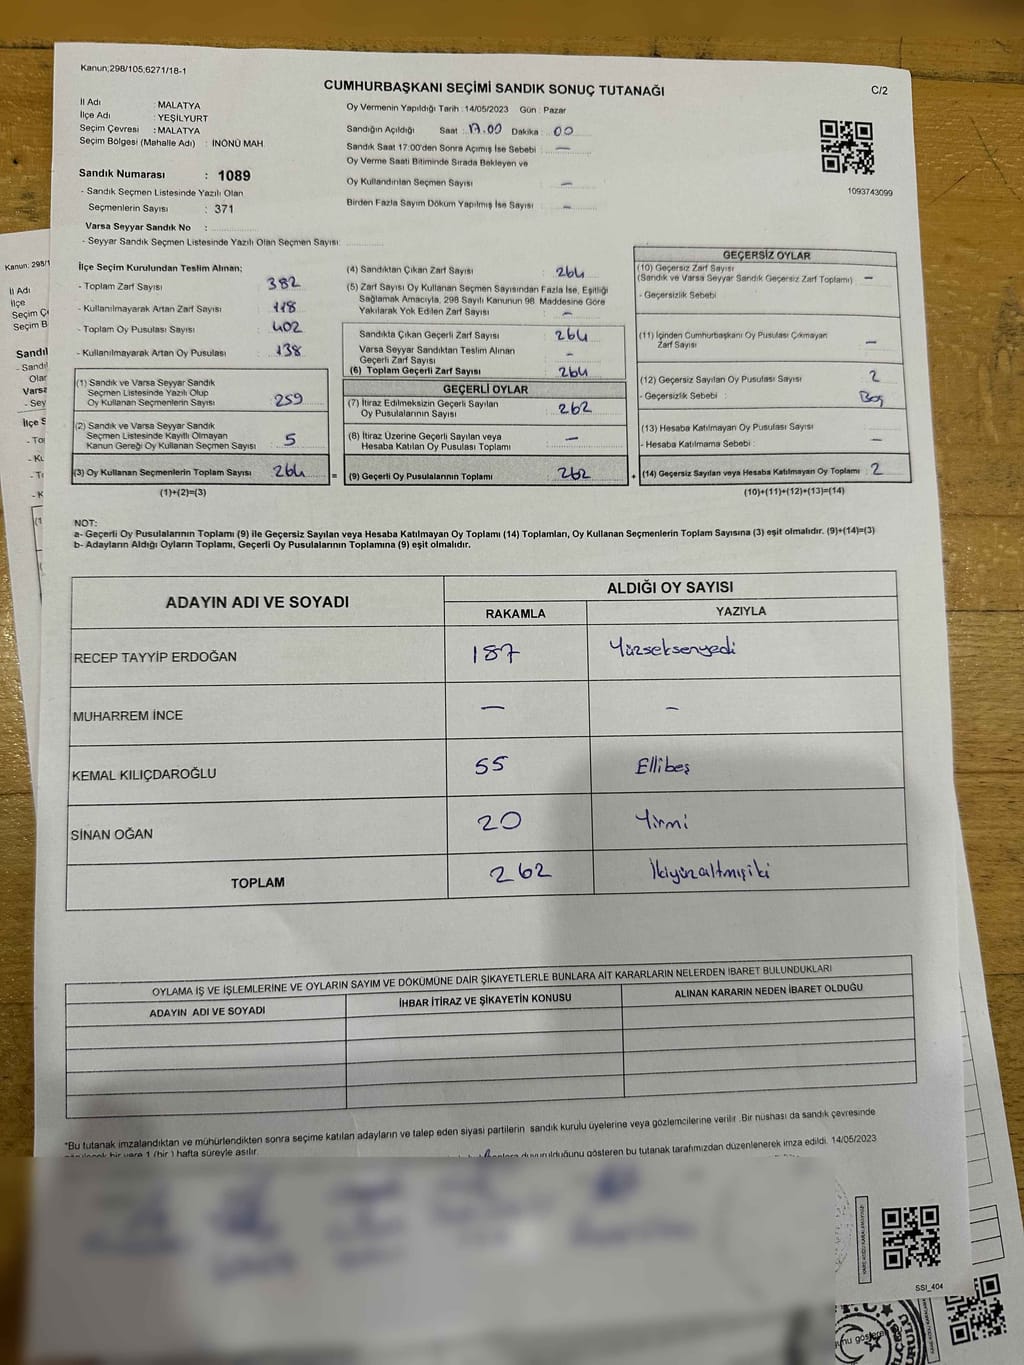 Kanun;298/105;6271/18-1
CUMHURBAŞKANI SEÇİMİ SANDIK SONUÇ TUTANAĞI
C/2
İl Adı : MALATYA
İlçe Adı : YEŞİLYURT
Seçim Çevresi : MALATYA
Seçim Bölgesi (Mahalle Adı) : İNÖNÜ MAH.
Sandık Numarası : 1089
- Sandık Seçmen Listesinde Yazılı Olan
Seçmenlerin Sayısı : 371
Varsa Seyyar Sandık No :
- Seyyar Sandık Seçmen Listesinde Yazılı Olan Seçmen Sayısı:
Oy Vermenin Yapıldığı Tarih :14/05/2023 Gün : Pazar
Sandığın Açıldığı Saat : 17.00 Dakika : 00
Sandık Saat 17:00'den Sonra Açımış İse Sebebi : —
Oy Verme Saati Bitiminde Sırada Bekleyen ve
Oy Kullandırılan Seçmen Sayısı : —
Birden Fazla Sayım Döküm Yapılmış İse Sayısı : —
1093743099
İlçe Seçim Kurulundan Teslim Alınan;
- Toplam Zarf Sayısı : 382
- Kullanılmayarak Artan Zarf Sayısı : 118
- Toplam Oy Pusulası Sayısı : 402
- Kullanılmayarak Artan Oy Pusulası : 138
(1) Sandık ve Varsa Seyyar Sandık
Seçmen Listesinde Yazılı Olup
Oy Kullanan Seçmenlerin Sayısı : 259
(2) Sandık ve Varsa Seyyar Sandık
Seçmen Listesinde Kayıtlı Olmayan
Kanun Gereği Oy Kullanan Seçmen Sayısı : 5
(3) Oy Kullanan Seçmenlerin Toplam Sayısı : 264
(1)+(2)=(3)
=
(4) Sandıktan Çıkan Zarf Sayısı : 264
(5) Zarf Sayısı Oy Kullanan Seçmen Sayısından Fazla İse, Eşitliği
Sağlamak Amacıyla, 298 Sayılı Kanunun 98. Maddesine Göre
Yakılarak Yok Edilen Zarf Sayısı : —
Sandıkta Çıkan Geçerli Zarf Sayısı : 264
Varsa Seyyar Sandıktan Teslim Alınan
Geçerli Zarf Sayısı : —
(6) Toplam Geçerli Zarf Sayısı : 264
GEÇERLİ OYLAR
(7) İtiraz Edilmeksizin Geçerli Sayılan
Oy Pusulalarının Sayısı : 262
(8) İtiraz Üzerine Geçerli Sayılan veya
Hesaba Katılan Oy Pusulası Toplamı : —
(9) Geçerli Oy Pusulalarının Toplamı : 262
+
GEÇERSİZ OYLAR
(10) Geçersiz Zarf Sayısı
(Sandık ve Varsa Seyyar Sandık Geçersiz Zarf Toplamı) : —
- Geçersizlik Sebebi :
(11) İçinden Cumhurbaşkanı Oy Pusulası Çıkmayan
Zarf Sayısı : —
(12) Geçersiz Sayılan Oy Pusulası Sayısı : 2
- Geçersizlik Sebebi : Boş
(13) Hesaba Katılmayan Oy Pusulası Sayısı :
- Hesaba Katılmama Sebebi : —
(14) Geçersiz Sayılan veya Hesaba Katılmayan Oy Toplamı : 2
(10)+(11)+(12)+(13)=(14)
NOT:
a- Geçerli Oy Pusulalarının Toplamı (9) ile Geçersiz Sayılan veya Hesaba Katılmayan Oy Toplamı (14) Toplamları, Oy Kullanan Seçmenlerin Toplam Sayısına (3) eşit olmalıdır. (9)+(14)=(3)
b- Adayların Aldığı Oyların Toplamı, Geçerli Oy Pusulalarının Toplamına (9) eşit olmalıdır.
ADAYIN ADI VE SOYADI
ALDIĞI OY SAYISI
RAKAMLA YAZIYLA
RECEP TAYYİP ERDOĞAN 187 Yüzseksenyedi
MUHARREM İNCE — —
KEMAL KILIÇDAROĞLU 55 Ellibeş
SİNAN OĞAN 20 Yirmi
TOPLAM 262 İkiyüzaltmışiki
OYLAMA İŞ VE İŞLEMLERİNE VE OYLARIN SAYIM VE DÖKÜMÜNE DAİR ŞİKAYETLERLE BUNLARA AİT KARARLARIN NELERDEN İBARET BULUNDUKLARI
ADAYIN ADI VE SOYADI İHBAR İTİRAZ VE ŞİKAYETİN KONUSU ALINAN KARARIN NEDEN İBARET OLDUĞU
*Bu tutanak imzalandıktan ve mühürlendikten sonra seçime katılan adayların ve talep eden siyasi partilerin sandık kurulu üyelerine veya gözlemcilerine verilir .Bir nüshası da sandık çevresinde
görülecek bir yere 1 (bir ) hafta süreyle asılır.
duyurulduğunu gösteren bu tutanak tarafımızdan düzenlenerek imza edildi. 14/05/2023
SSI_404